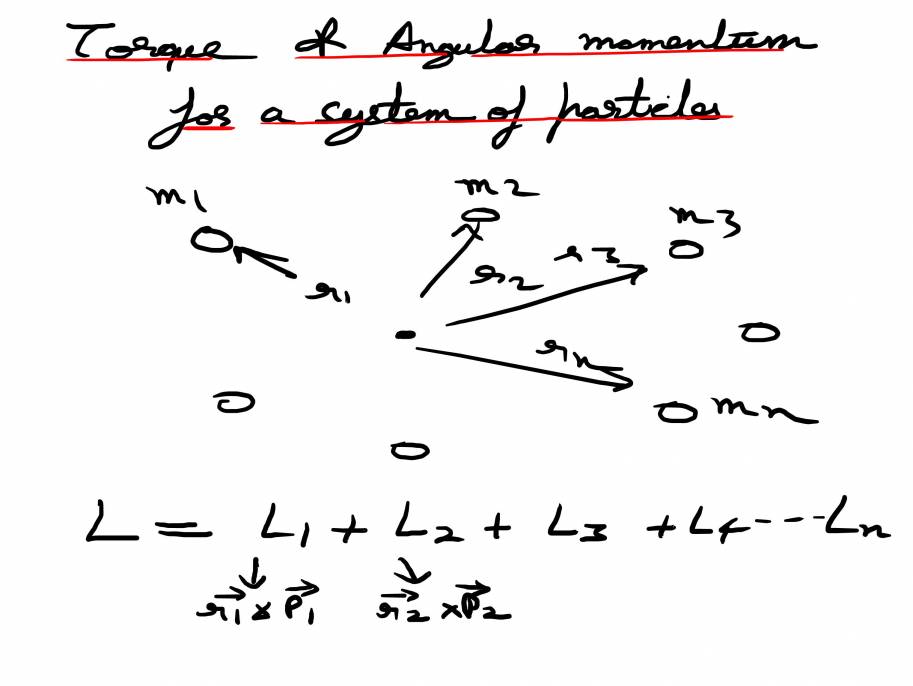 Torque & Angular momentum
for a system of particles
m1
m2
m3
r1
r2
r3
rn
mn
L = L1 + L2 + L3 + L4 --- Ln
r⃗1 × P⃗1 r⃗2 × P⃗2